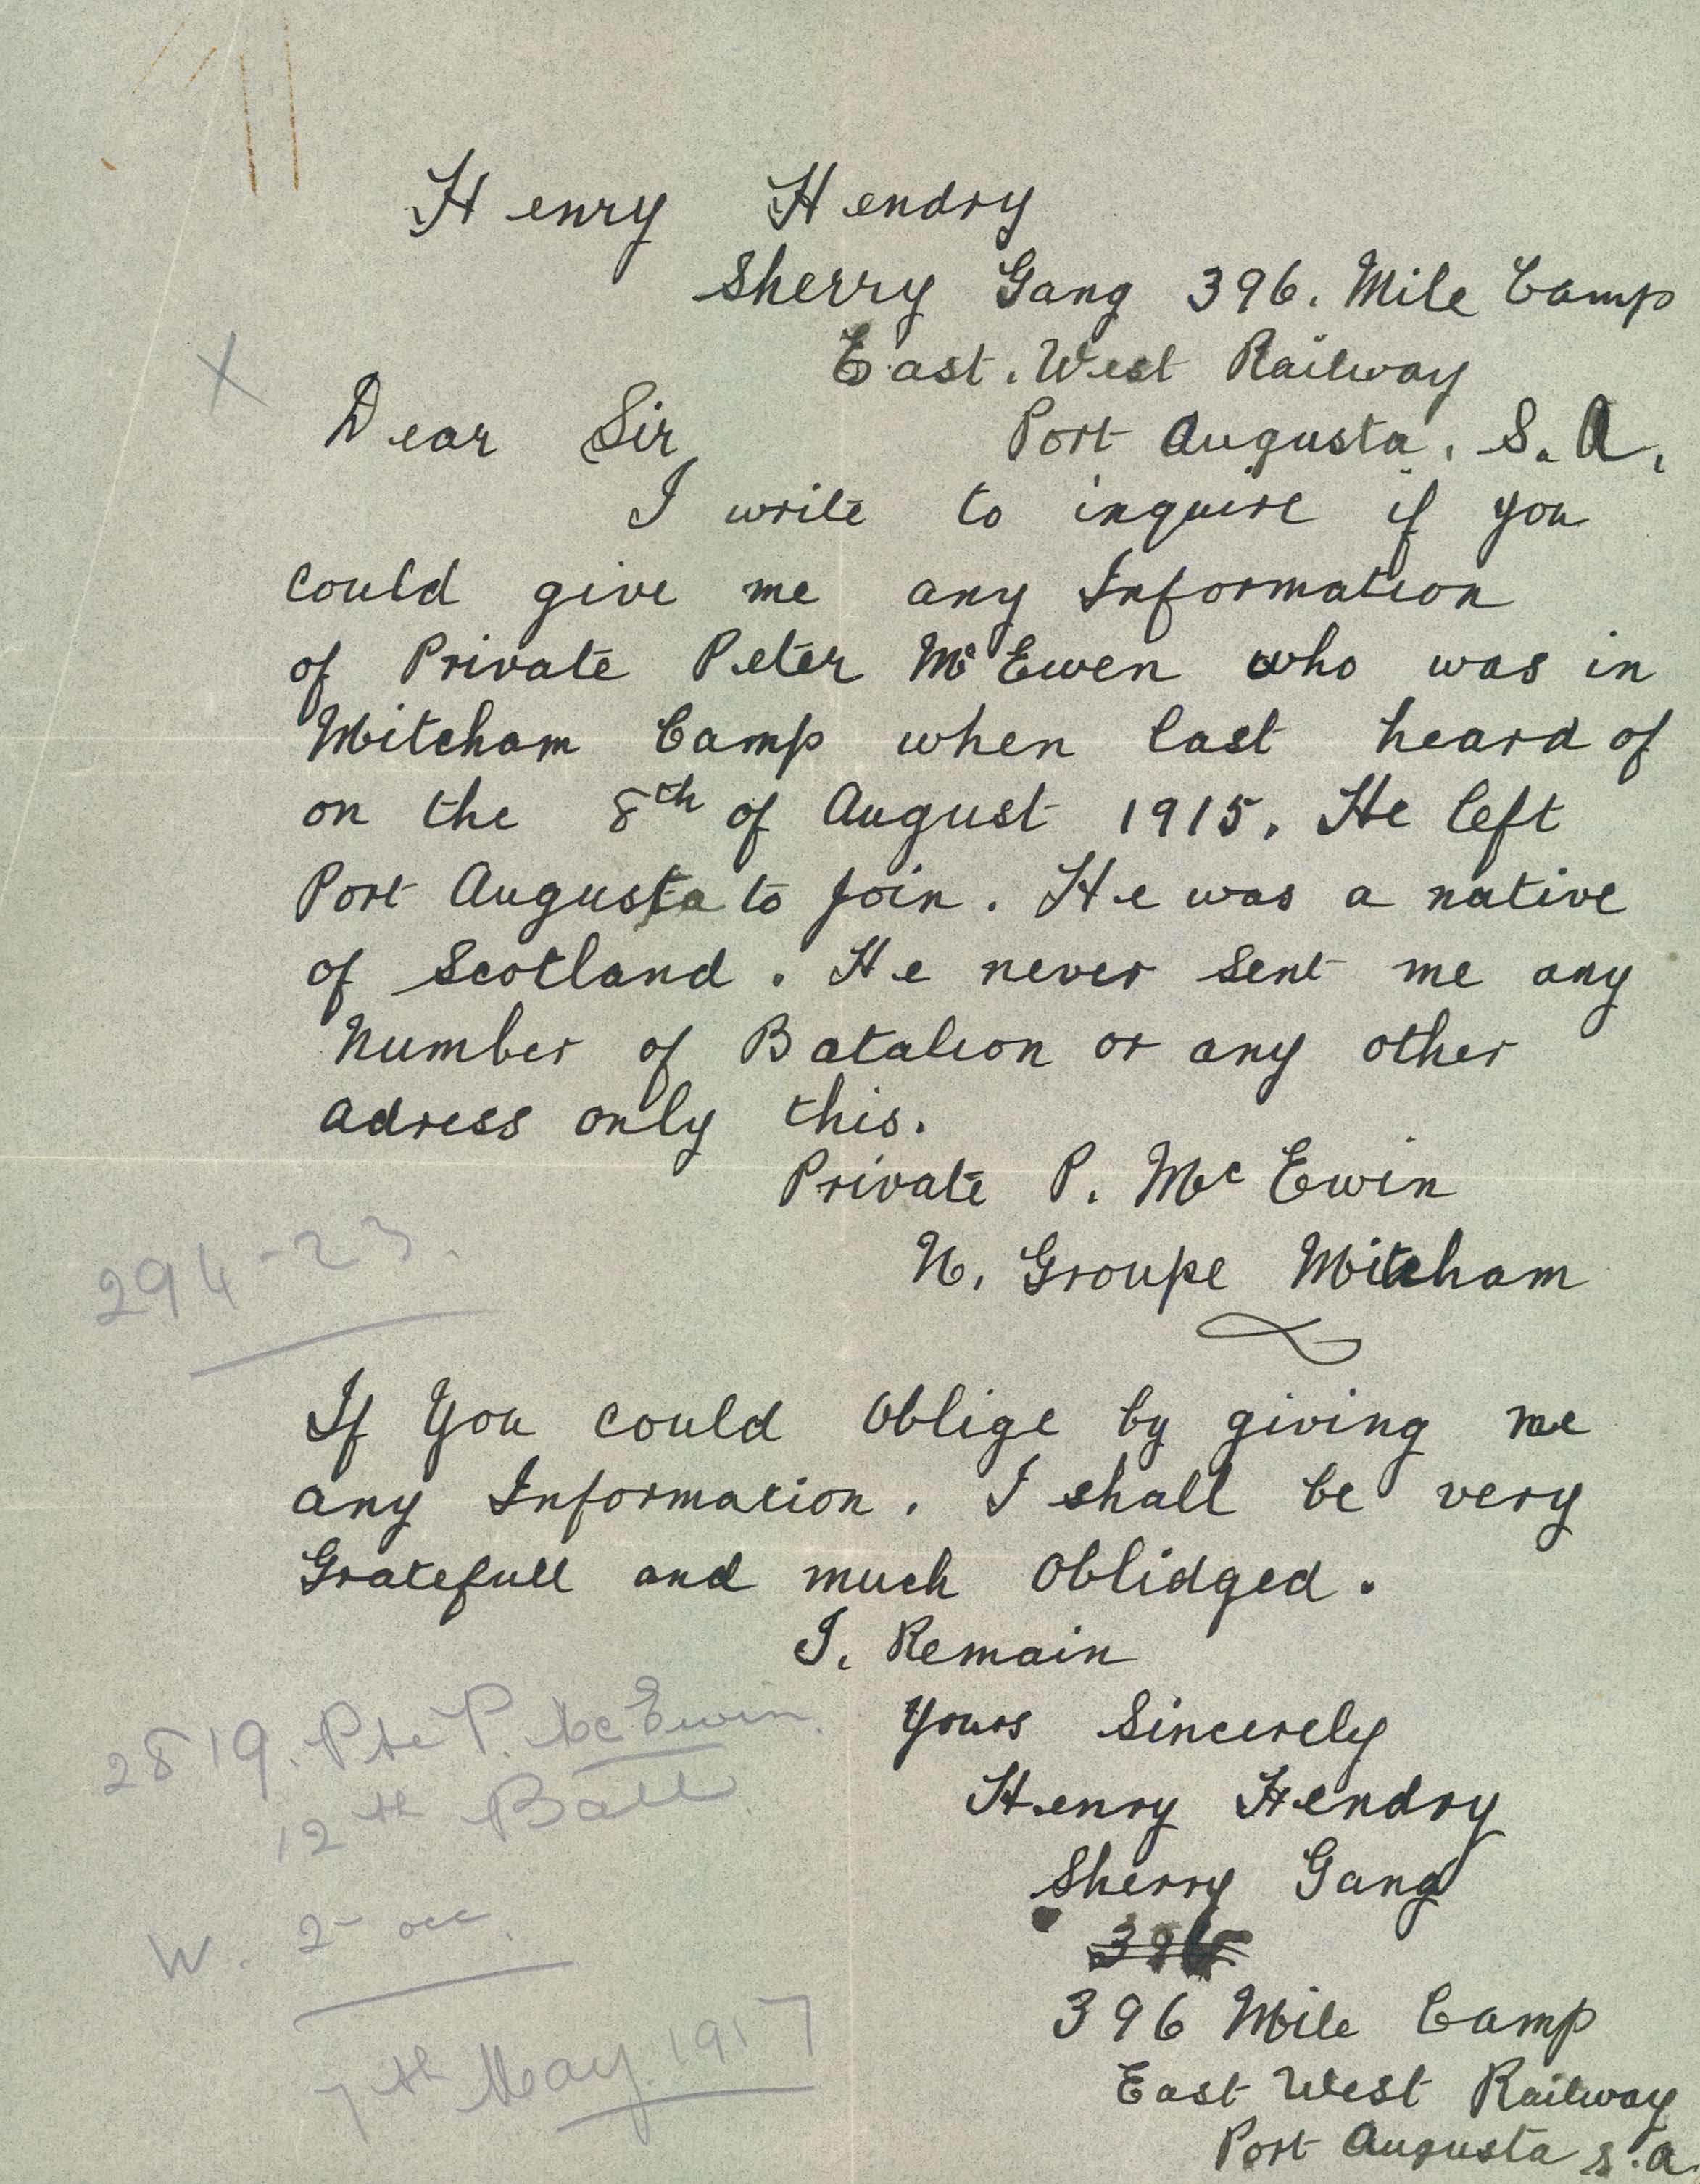 Henry Hendry
Sherry Gang 396. Mile Camp
East. West Railway
Port Augusta. S. A.
Dear Sir,
I write to inquire if you
could give me any Information
of Private Peter Mc Ewen who was in
Mitcham Camp when last heard of
on the 8th of August 1915. He left
Port Augusta to join. He was a native
of Scotland. He never sent me any
Number of Batalion or any other
adress only this.
Private P. Mc Ewin
N. Groupe Mitcham
294-23.
If You could Oblige by giving me
any Information. I shall be very
Gratefull and much Oblidged.
I. Remain
Yours Sincerely
2819. Pte P. Mc Ewin.
12th Batt
Henry Hendry
Sherry Gang
W. 2nd occ.
396
396 Mile Camp
7th May 1917
East West Railway
Port Augusta S.A.